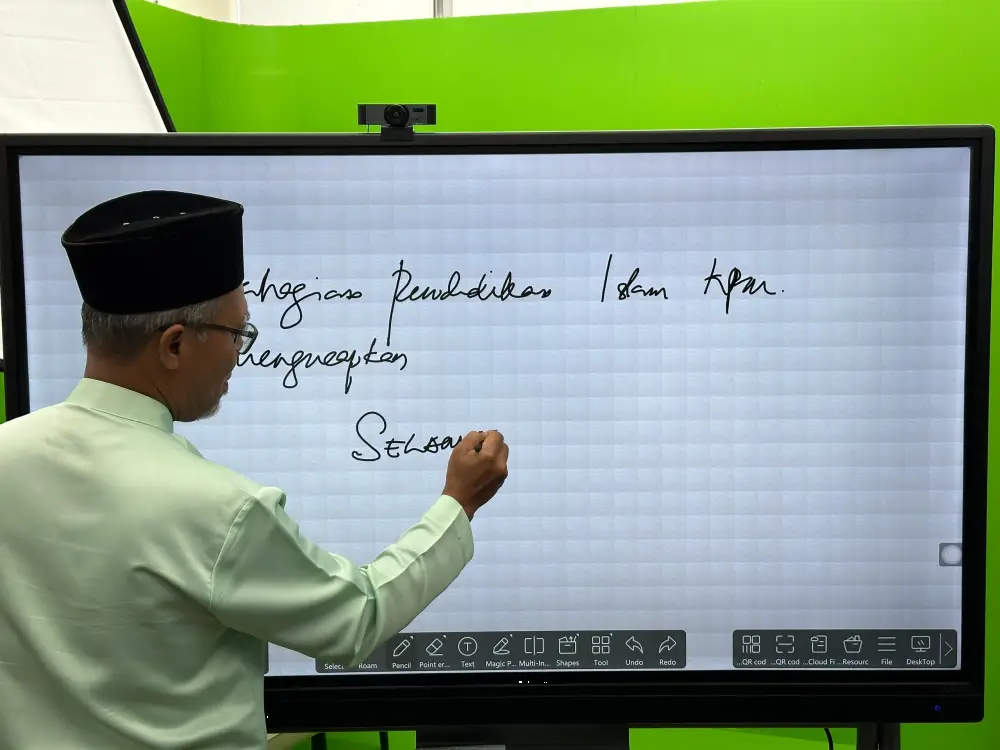 Pendidikan Islam KPM.
SELAM
Select Roam Pencil Point er... Text Magic P... Multi-In... Shapes Tool Undo Redo
...QR cod ...QR cod ...Cloud Fi ...Resourc File DeskTop